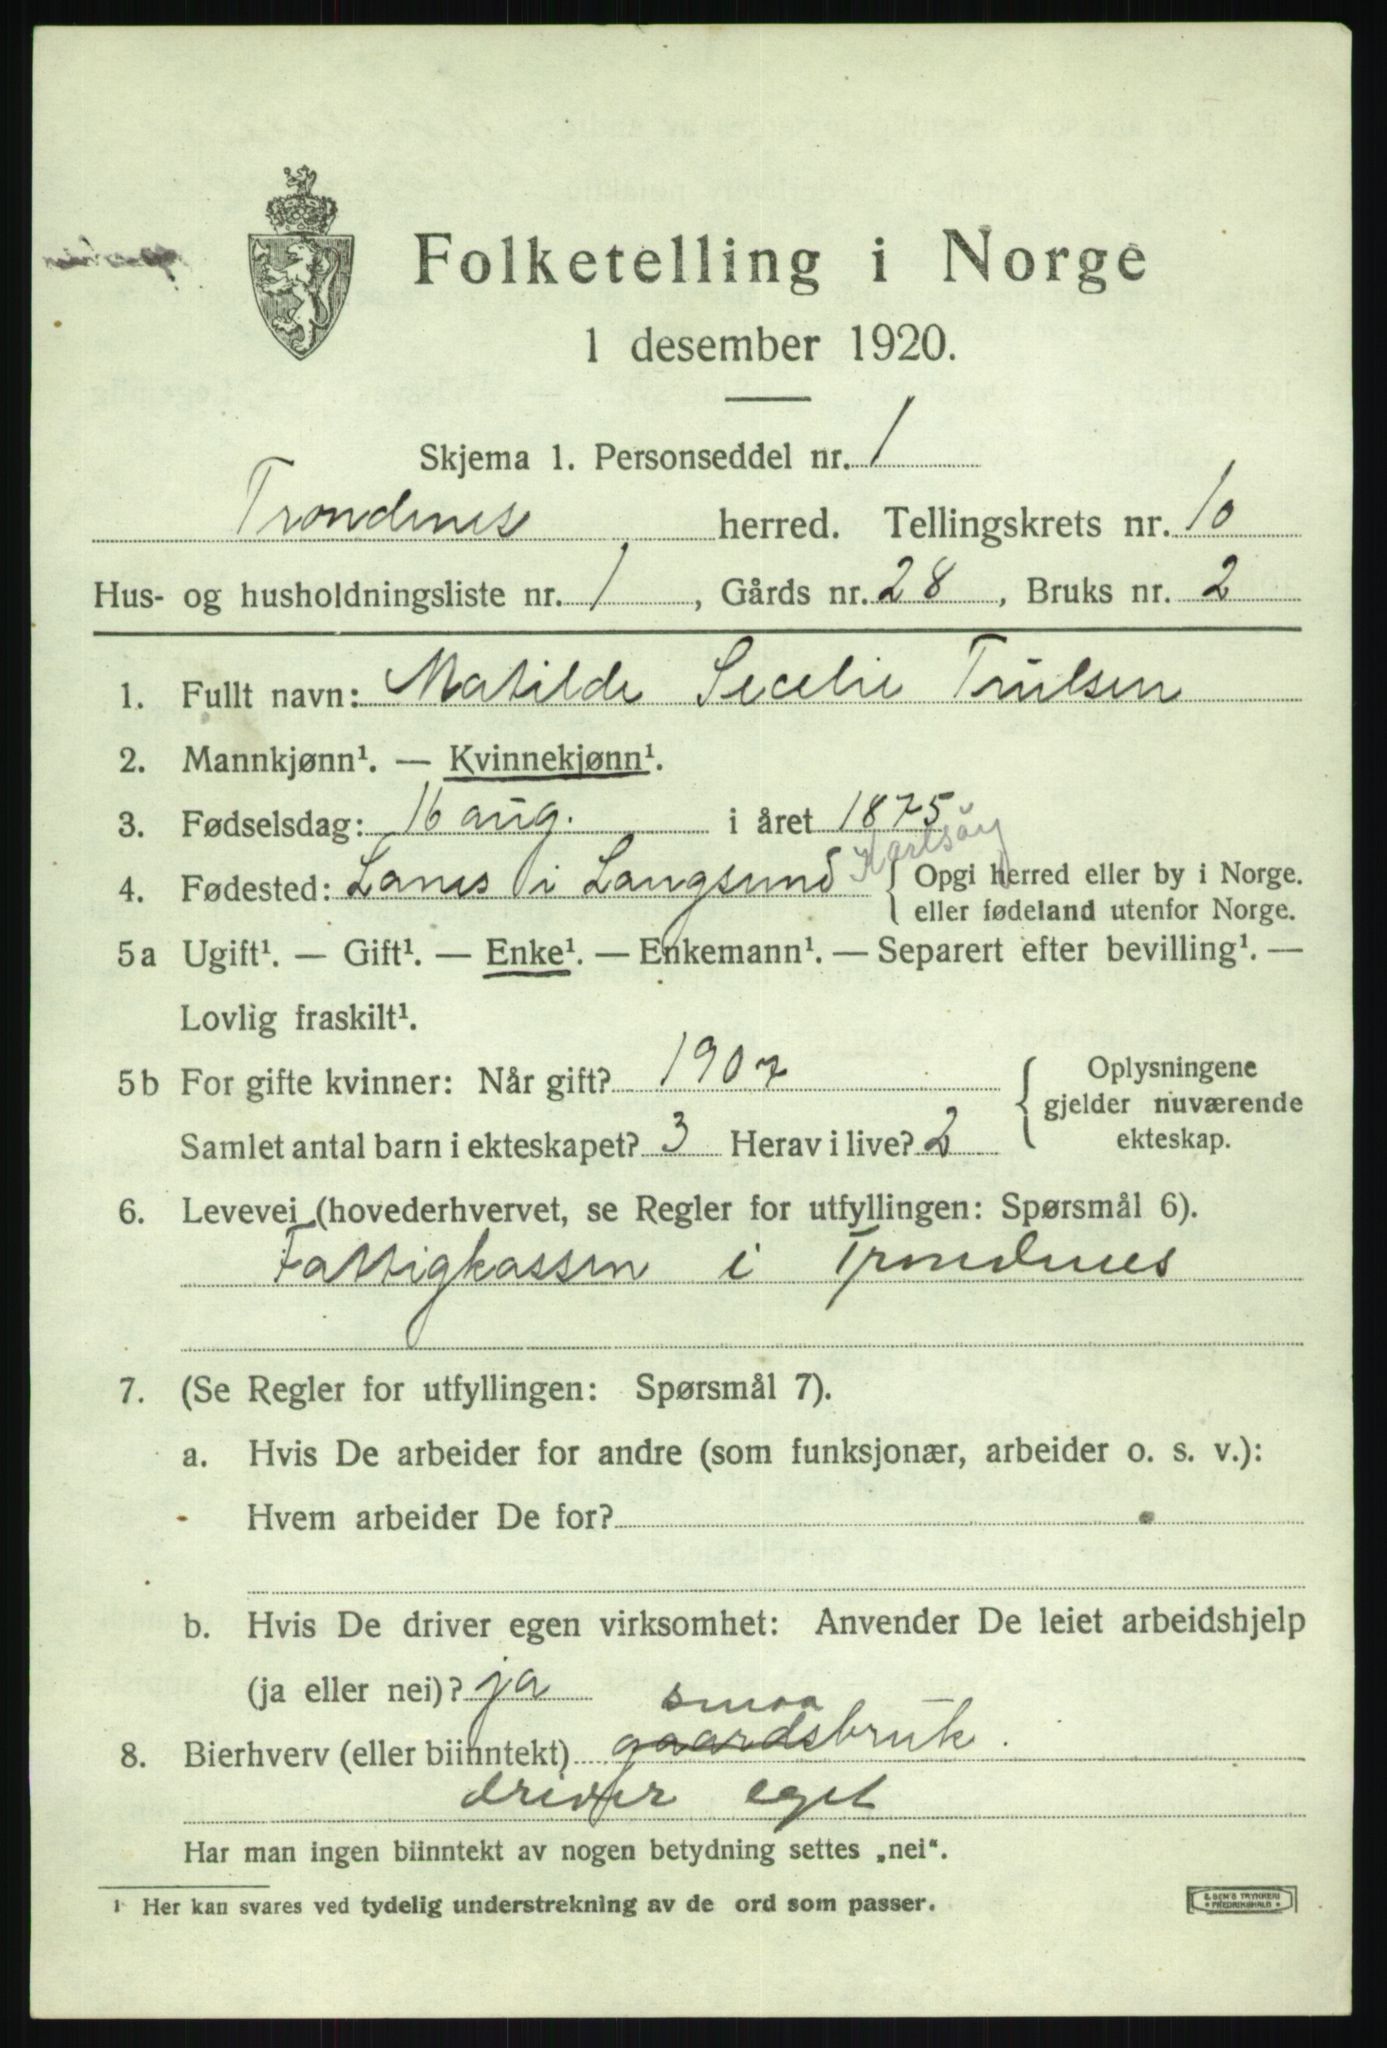 Folketelling i Norge
1 desember 1920.
Skjema 1. Personseddel nr. 1
Trondenes herred. Tellingskrets nr. 10
Hus- og husholdningsliste nr. 1, Gårds nr. 28, Bruks nr. 2
1. Fullt navn: Matilde Secelie Trulsen
2. Mannkjønn¹. — Kvinnekjønn¹.
3. Fødselsdag: 16 aug. i året 1875
Karlsöy
4. Fødested: Lanes i Langsund { Opgi herred eller by i Norge.
eller fødeland utenfor Norge.
5a Ugift¹. — Gift¹. — Enke¹. — Enkemann¹. — Separert efter bevilling¹. —
Lovlig fraskilt¹.
5b For gifte kvinner: Når gift? 1907 { Oplysningene
gjelder nuværende
Samlet antal barn i ekteskapet? 3 Herav i live? 2 ekteskap.
6. Levevei (hovederhvervet, se Regler for utfyllingen: Spørsmål 6).
Fattigkassen i Trondenes
7. (Se Regler for utfyllingen: Spørsmål 7).
a. Hvis De arbeider for andre (som funksjonær, arbeider o. s. v.):
Hvem arbeider De for?
b. Hvis De driver egen virksomhet: Anvender De leiet arbeidshjelp
(ja eller nei)? ja
smaa
8. Bierhverv (eller biinntekt) gaardsbruk.
driver eget
Har man ingen biinntekt av nogen betydning settes „nei“.
¹ Her kan svares ved tydelig understrekning av de ord som passer.